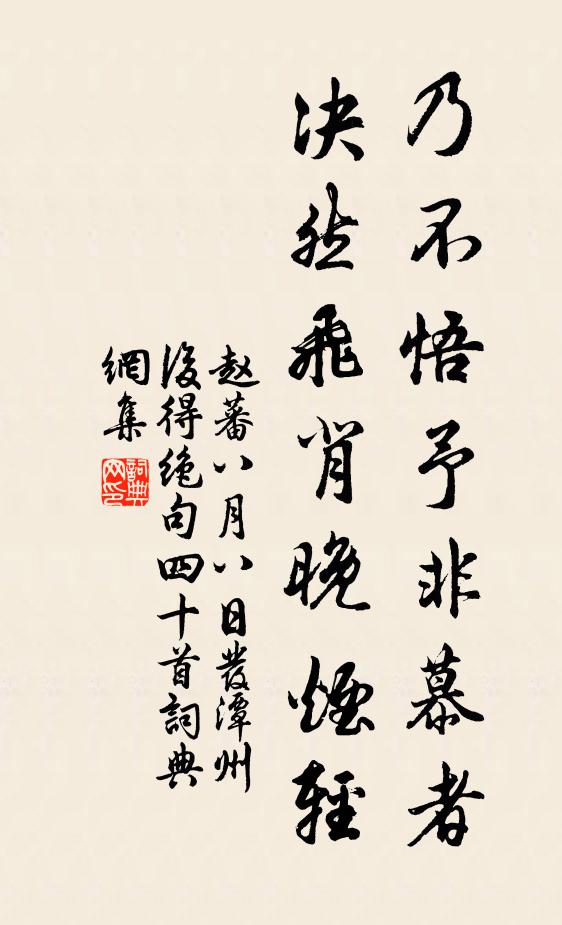 乃不悟予非慕者
决然飛背晚煙輕
赵蕃八月八日發潭州
後得絶句四十首詞典
網集
詞典網印